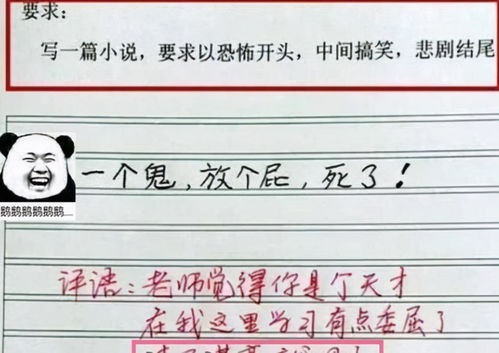 要求：
写一篇小说，要求以恐怖开头，中间搞笑，悲剧结尾
一个鬼，放个屁，死了！
鹅鹅鹅鹅鹅鹅
评语：老师觉得你是个天才
在我这里学习有点委屈了